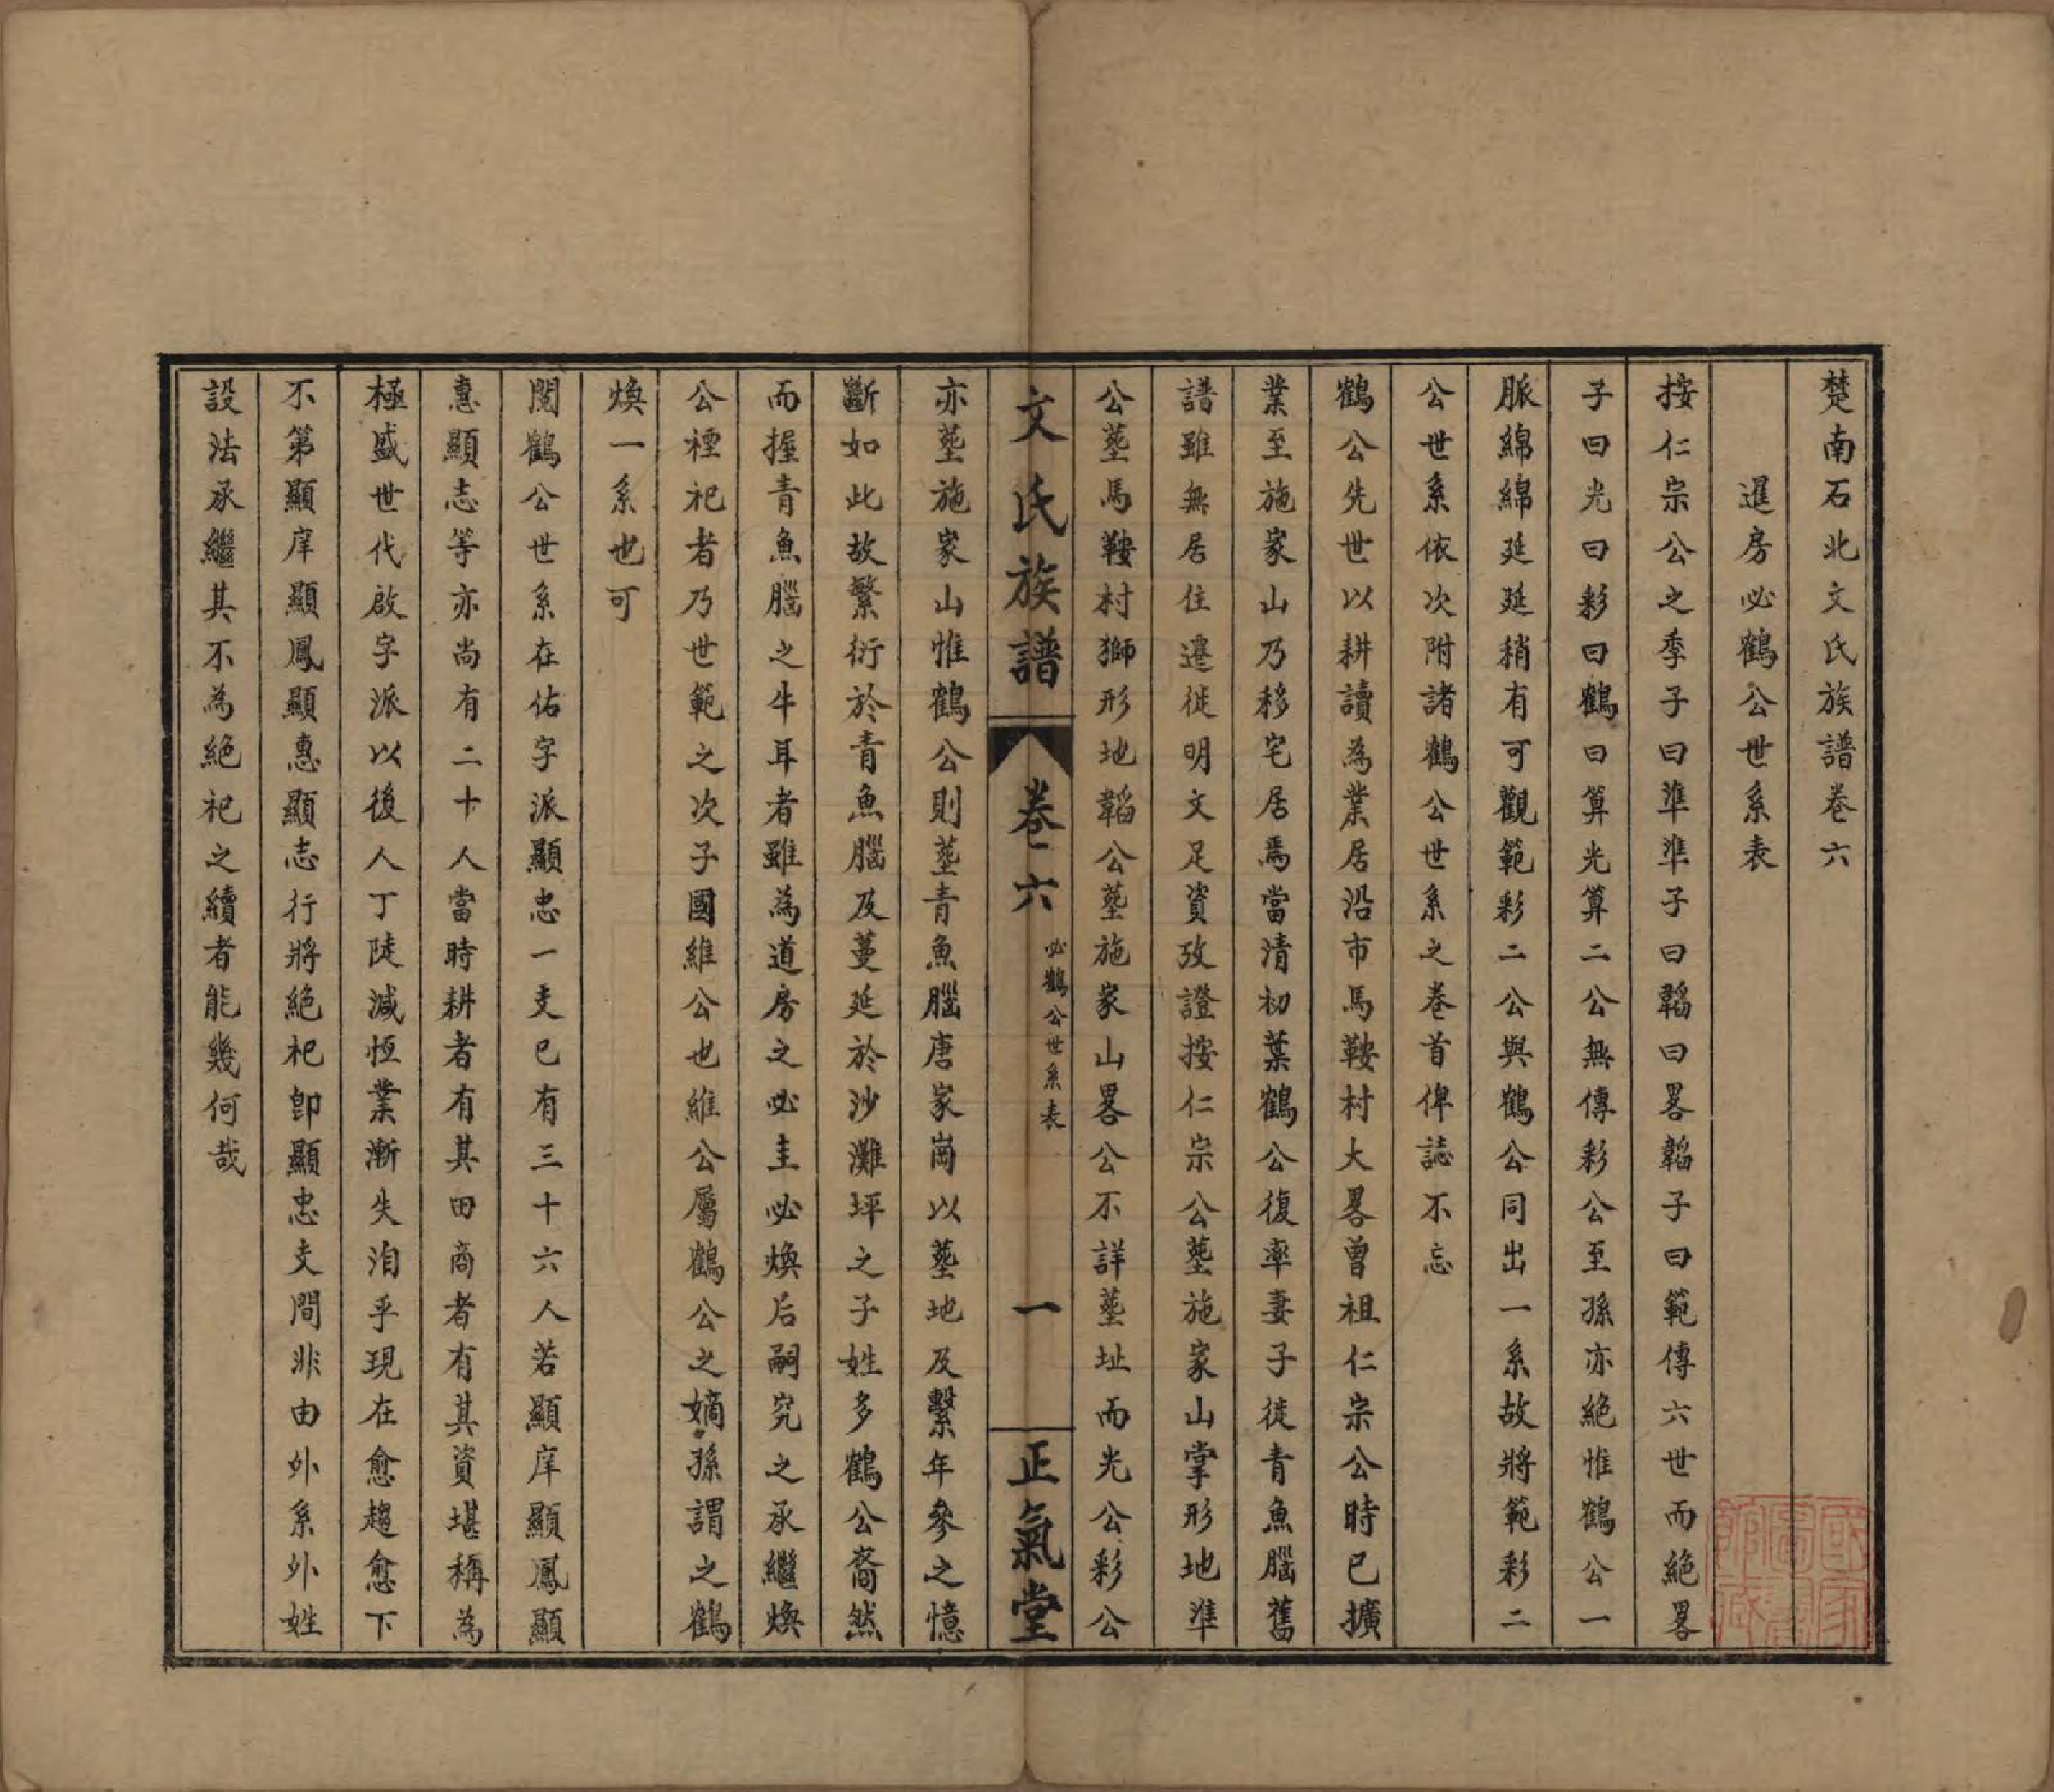 楚南石北文氏族譜卷六
暹房必鶴公世系表
按仁宗公之季子曰準準子曰韜曰畧韜子曰範傳六世而絶畧
子曰光曰彩曰鶴曰算光算二公無傳彩公至孫亦絶惟鶴公一
脈綿綿延延稍有可觀範彩二公與鶴公同出一系故將範彩二
公世系依次附諸鶴公世系之卷首俾誌不忘
鶴公先世以耕讀為業居沿市馬鞍村大畧曾祖仁宗公時已擴
業至施家山乃移宅居焉當清初葉鶴公復率妻子徙青魚腦舊
譜雖無居住遷徙明文足資攷證按仁宗公塟施家山掌形地準
公塟馬鞍村獅形地韜公塟施家山畧公不詳塟址而光公彩公
文氏族譜
卷六
必鶴公世系表
一
正氣堂
亦塟施家山惟鶴公則塟青魚腦唐家崗以塟地及繫年參之憶
斷如此故繁衍於青魚腦及蔓延於沙灘坪之子姓多鶴公裔然
而握青魚腦之牛耳者雖為道房之必圭必煥后嗣究之承繼煥
公禋祀者乃世範之次子國維公也維公屬鶴公之嫡孫謂之鶴
煥一系也可
閱鶴公世系在佑字派顯忠一支已有三十六人若顯庠顯鳳顯
惠顯志等亦尚有二十人當時耕者有其田商者有其資堪稱為
極盛世代啟字派以後人丁陡減恒業漸失洎乎現在愈趨愈下
不第顯庠顯鳳顯惠顯志行將絕祀卽顯忠支間非由外系外姓
設法承繼其不為絕祀之續者能幾何哉
國家圖書館藏